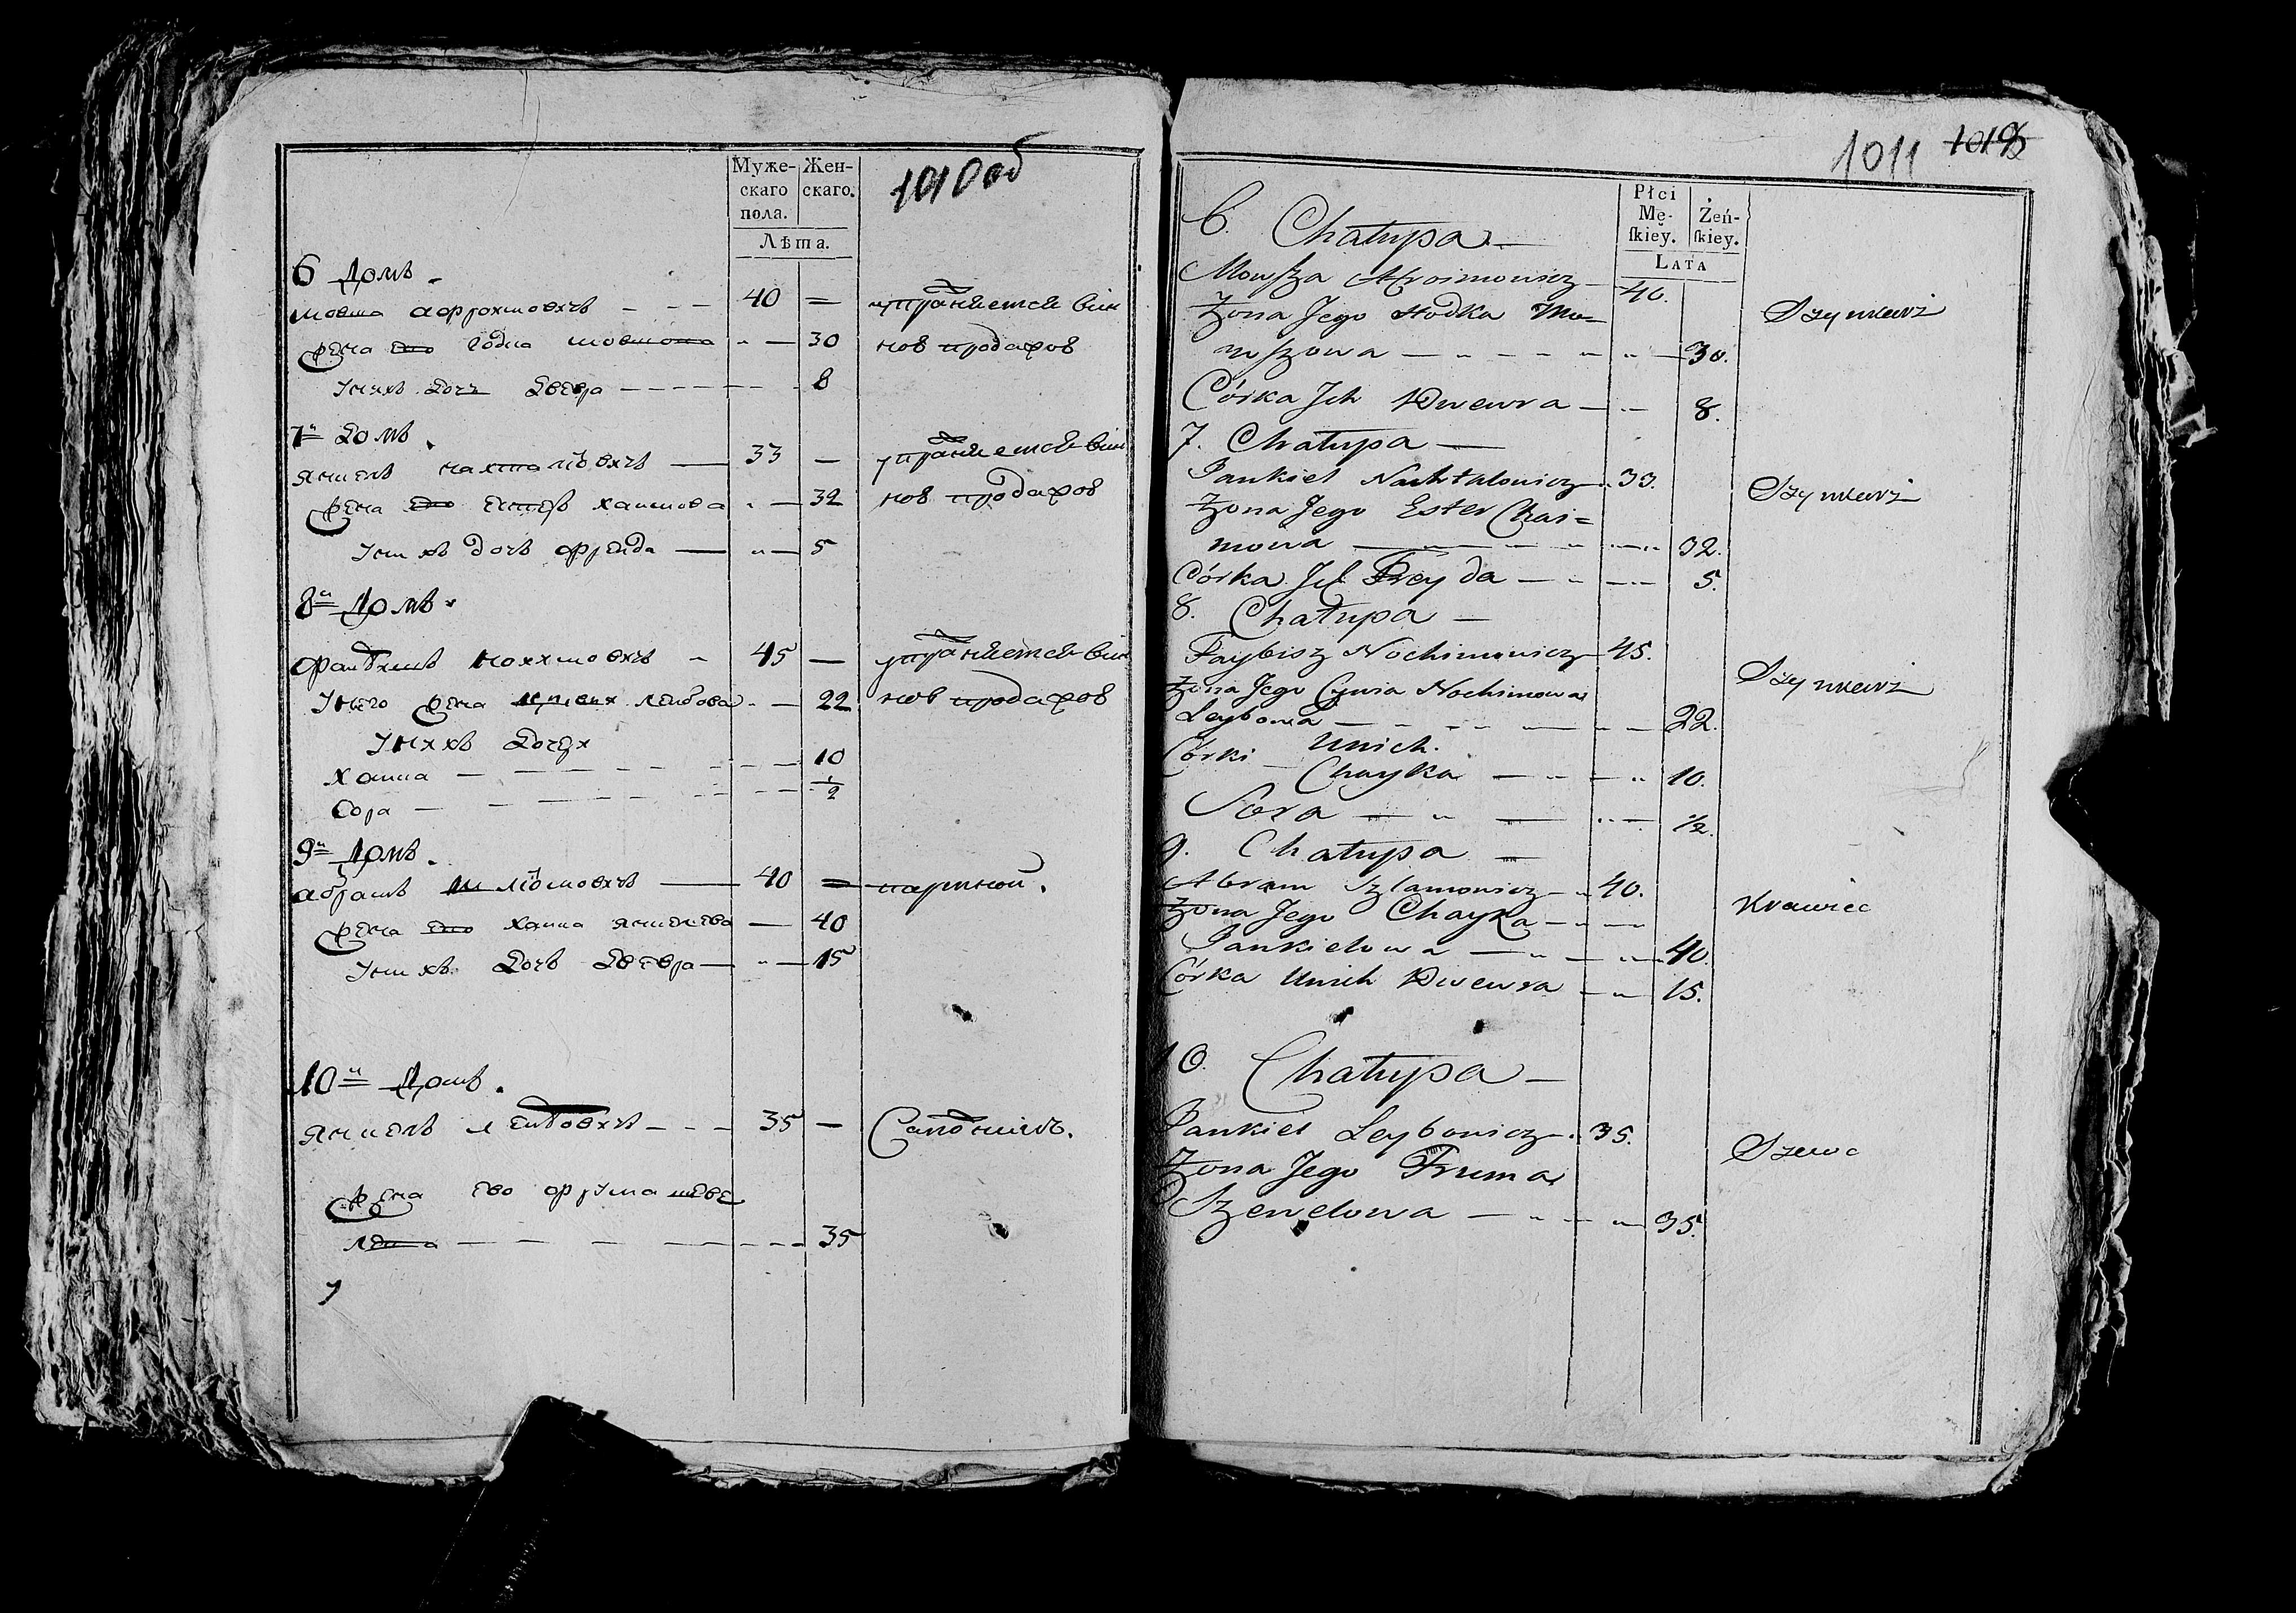 Муже-
скаго
пола.
Жен-
скаго.
Лѣта.
1010 об
6 домъ.
мовша афроимовичъ - - - 40 = упражняется вин
жена ево годка мовшова " — 30 ной продажов
у нихъ дочъ двера - - - - 8
7й домъ.
янкель нахталiовичъ — 33 — упражняется вин
жена ево естеръ хаимова " — 32 ной продажов
у нихъ дочъ фрейда — " — 5
8й домъ.
файбишъ нохимовичъ " 45 — упражняется вин
у него жена лейбова " — 22 ной продажов
у нихъ дочери
хаика — - - - - 10
сора — - - - - 1/2
9й домъ.
абрамъ шлiомовичъ — 40 = партной.
жена ево хаика янкелева — 40
у нихъ дочъ двевра — " — 15
10й домъ.
янкель лейбовичъ - - - 35 — сапожникъ.
жена ево фрума шеве
лева — - - - - 35
1011 1015
Płci
Mę-
ſkiey.
Żeń-
ſkiey.
LATA
6. Chałupa —
Mowsza Afroimowicz — 40. Szynkarz
Żona Jego Hodka Mo=
wszowa — " - - " " — 30.
Córka Ich Dwewra — " — 8.
7. Chałupa —
Jankiel Nachtalowicz — 33. Szynkarz
Żona Jego Ester Chai=
mowa — - - - 32.
Córka Ich Freyda — " — 5.
8. Chałupa —
Faybisz Nochimowicz — 45. Szynkarz
Żona Jego Cywia Nochimowa
Leybowa — - - - 22.
Córki Unich.
Chayka — " — " 10.
Sora — " — " — 1/2.
9. Chałupa —
Abram Szlamowicz — 40. Krawiec
Żona Jego Chayka — " —
Jankielowa — " — " — 40.
Córka Unich Dwewra — " — 15.
10. Chałupa —
Jankiel Leybowicz — 35. Szewc
Żona Jego Fruma
Szewelowa — " — " — 35.